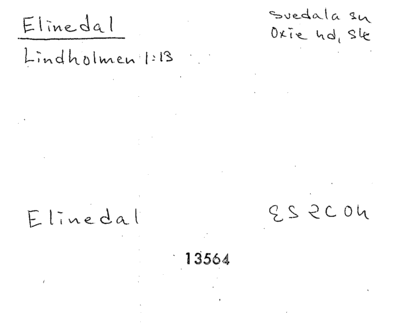 Elinedal
Svedala sn
Oxie hd, Sk
Lindholmen 1:13
Elinedal
13564